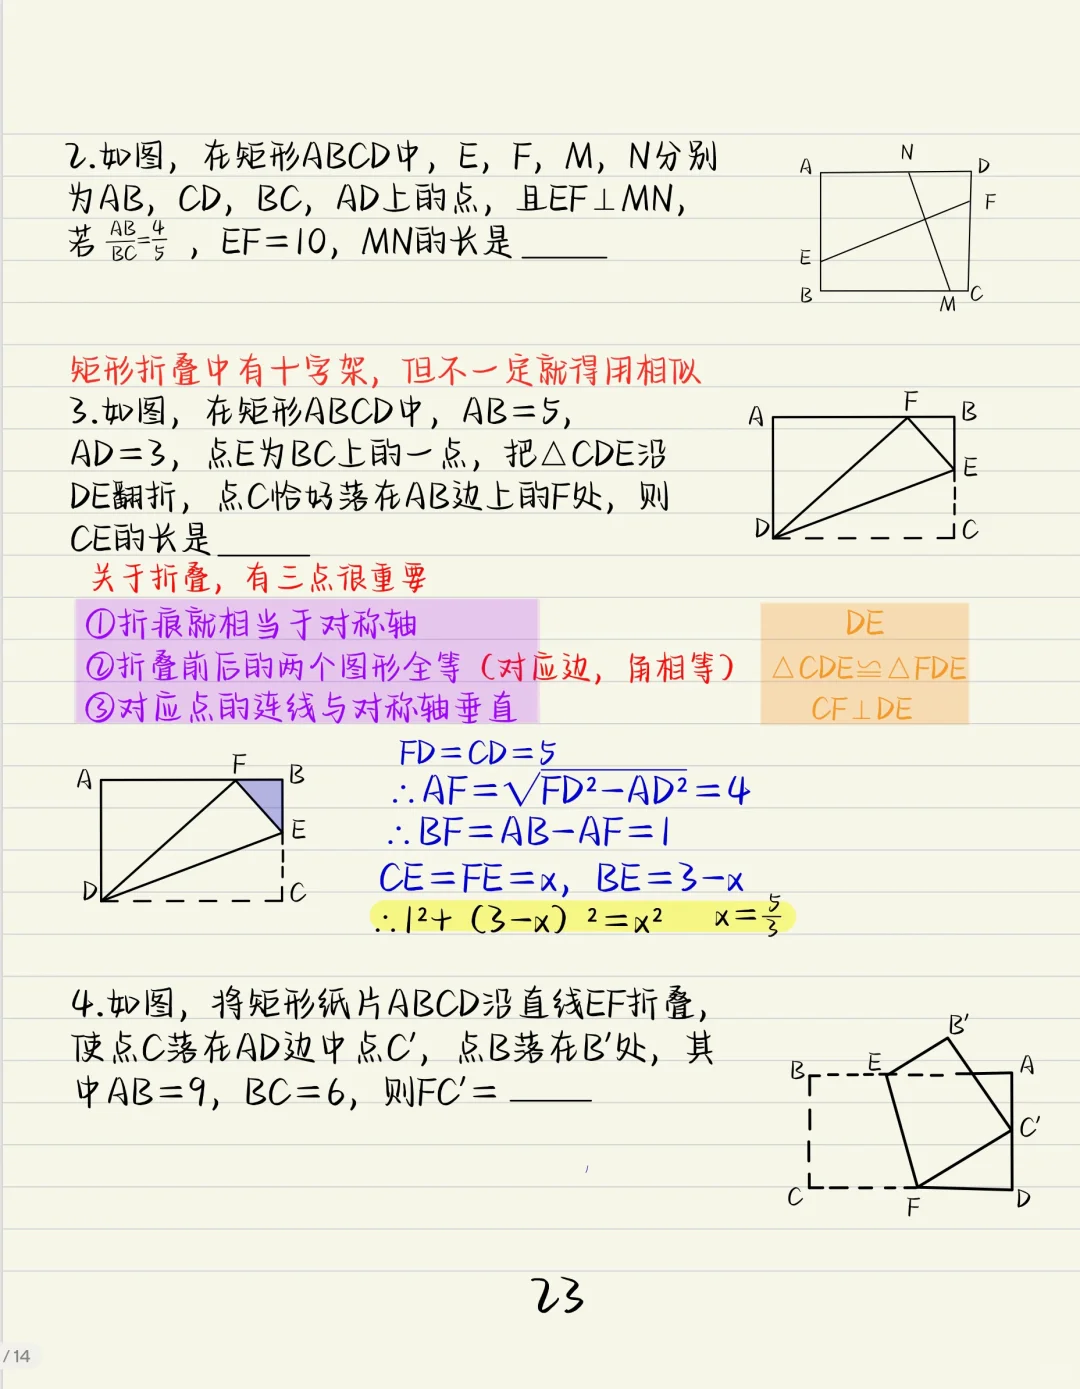 2.如图，在矩形ABCD中，E，F，M，N分别
为AB，CD，BC，AD上的点，且EF⊥MN，
若 AB/BC=4/5 ，EF=10，MN的长是______
A N D
F
E
B M C
矩形折叠中有十字架，但不一定就得用相似
3.如图，在矩形ABCD中，AB=5，
AD=3，点E为BC上的一点，把△CDE沿
DE翻折，点C恰好落在AB边上的F处，则
CE的长是______
A F B
E
D C
关于折叠，有三点很重要
①折痕就相当于对称轴 DE
②折叠前后的两个图形全等（对应边，角相等） △CDE≌△FDE
③对应点的连线与对称轴垂直 CF⊥DE
A F B
E
D C
FD=CD=5
∴AF=√FD²-AD²=4
∴BF=AB-AF=1
CE=FE=x，BE=3-x
∴1²+（3-x）²=x² x=5/3
4.如图，将矩形纸片ABCD沿直线EF折叠，
使点C落在AD边中点C′，点B落在B′处，其
中AB=9，BC=6，则FC′=______
B′
B E A
C′
C F D
23
/ 14